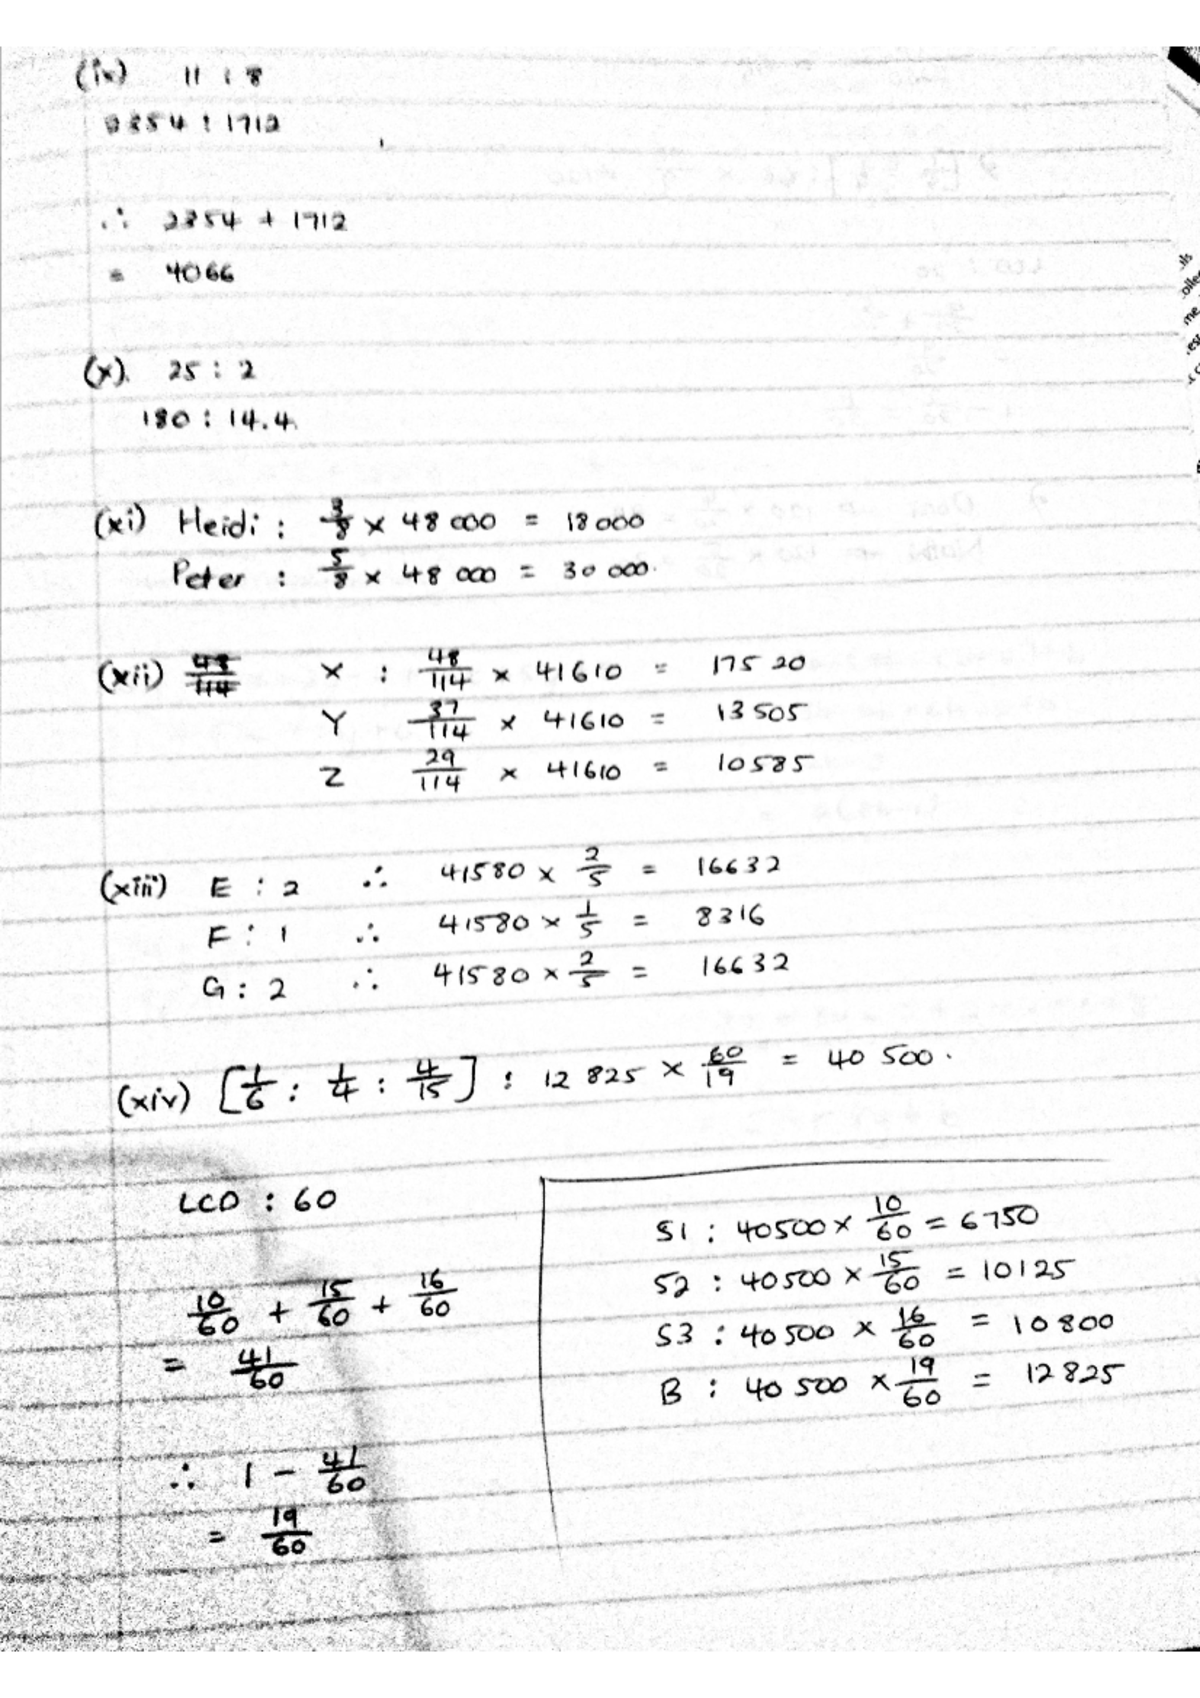 (ix) 11 : 8
2354 : 1712
∴ 2354 + 1712
= 4066
(x). 25 : 2
180 : 14.4
(xi) Heidi : 3/8 × 48 000 = 18 000
Peter : 5/8 × 48 000 = 30 000.
(xii) 48/114 X : 48/114 × 41610 = 17520
Y 37/114 × 41610 = 13505
Z 29/114 × 41610 = 10585
(xiii) E : 2 ∴ 41580 × 2/5 = 16632
F : 1 ∴ 41580 × 1/5 = 8316
G : 2 ∴ 41580 × 2/5 = 16632
(xiv) [1/6 : 1/4 : 4/15] : 12 825 × 60/19 = 40 500.
LCD : 60
10/60 + 15/60 + 16/60
= 41/60
∴ 1 - 41/60
= 19/60
S1 : 40500 × 10/60 = 6750
S2 : 40500 × 15/60 = 10125
S3 : 40500 × 16/60 = 10800
B : 40 500 × 19/60 = 12825